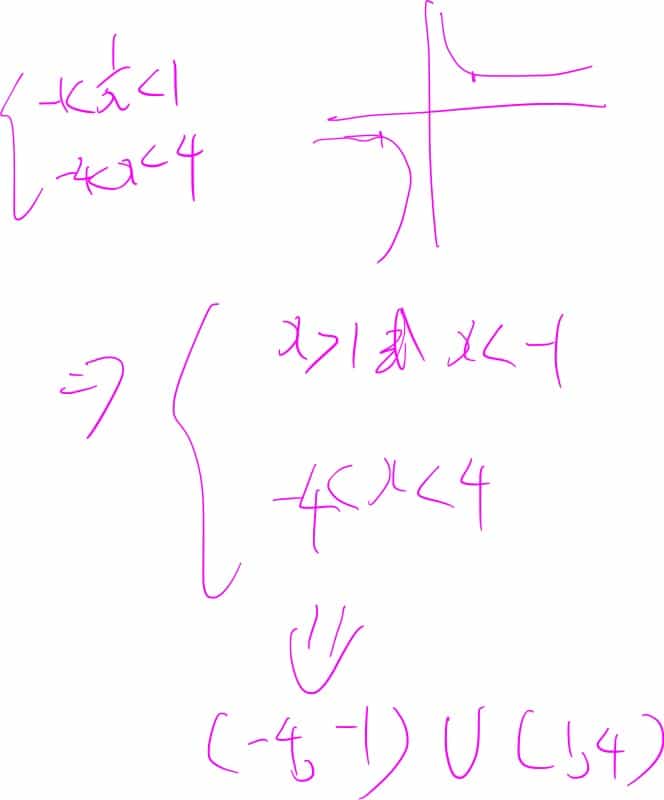 { -1<1/x<1
-4<x<4
⇒ { x>1 或 x<-1
-4<x<4
⇓
(-4,-1)∪(1,4)